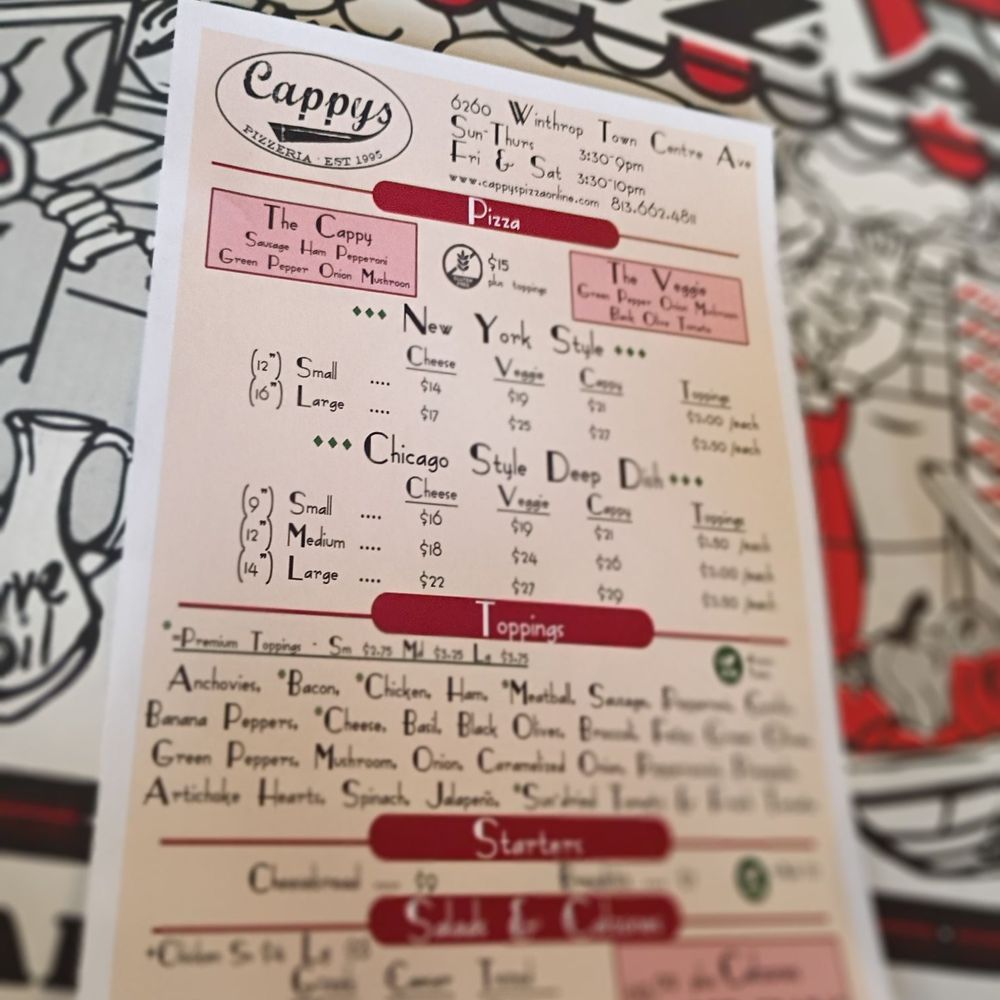 Cappys
PIZZERIA · EST 1995
6260 Winthrop Town Centre Ave
Sun-Thurs 3:30-9pm
Fri & Sat 3:30-10pm
www.cappyspizzaonline.com 813.662.4811
Pizza
The Cappy
Sausage Ham Pepperoni
Green Pepper Onion Mushroon
$15
plus toppings
The Veggie
Green Pepper Onion Mushroom
Black Olive Tomato
New York Style
Cheese Veggie Cappy Toppings
(12") Small .... $14 $19 $21 $2.00 /each
(16") Large .... $17 $25 $27 $2.50 /each
Chicago Style Deep Dish
Cheese Veggie Cappy Toppings
(9") Small .... $16 $19 $21 $1.50 /each
(12") Medium .... $18 $24 $26 $2.00 /each
(14") Large .... $22 $27 $29 $2.50 /each
Toppings
*=Premium Toppings - Sm $2.75 Md $3.25 La $3.75
Anchovies, *Bacon, *Chicken, Ham, *Meatball, Sausage, Pepperoni, Garlic,
Banana Peppers, *Cheese, Basil, Black Olives, Broccoli, Feta, Green Olives
Green Peppers, Mushroom, Onion, Caramelized Onion,
Artichoke Hearts, Spinach, Jalapeño, *Sun-dried Tomato &
Starters
Cheesebread .... $9
Salads & Calzones